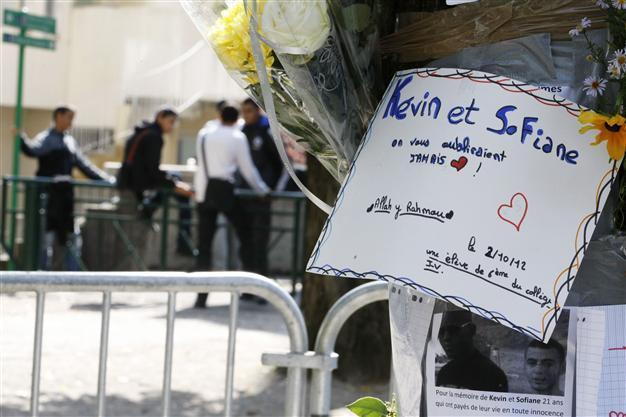 mes
Kevin et Sofiane
on vous oublieraient
JAMAIS !
Allah y Rahmou
le 2/10/12
une élève de 6ème du collège
I.V.
Pour la mémoire de Kevin et Sofiane 21 ans
qui ont payés de leur vie en toute innocence